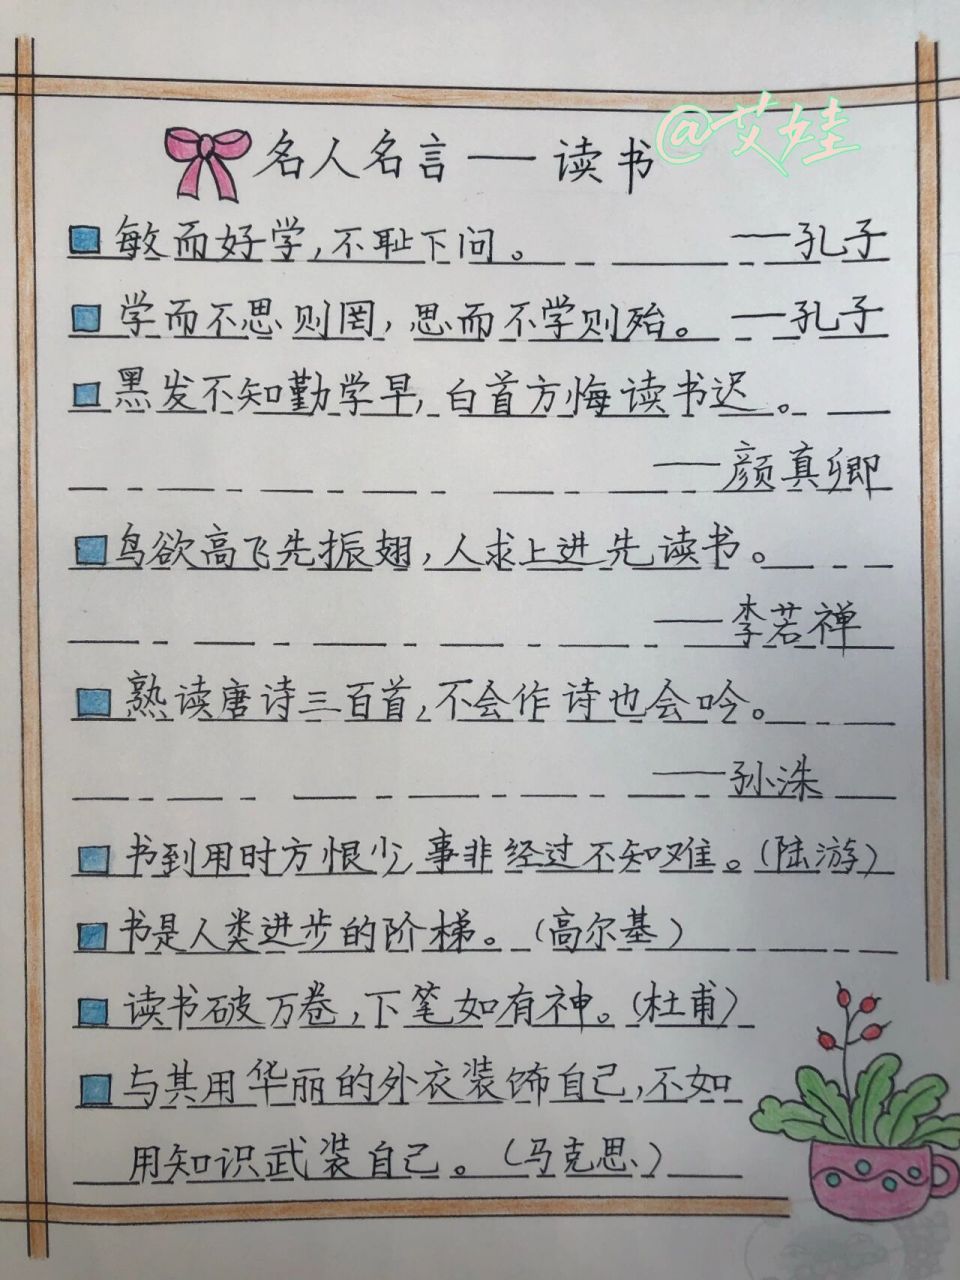 名人名言——读书
@艾娃
敏而好学,不耻下问。 ——孔子
学而不思则罔,思而不学则殆。 ——孔子
黑发不知勤学早,白首方悔读书迟。
——颜真卿
鸟欲高飞先振翅,人求上进先读书。
——李若禅
熟读唐诗三百首,不会作诗也会吟。
——孙洙
书到用时方恨少,事非经过不知难。(陆游)
书是人类进步的阶梯。(高尔基)
读书破万卷,下笔如有神。(杜甫)
与其用华丽的外衣装饰自己,不如
用知识武装自己。(马克思)